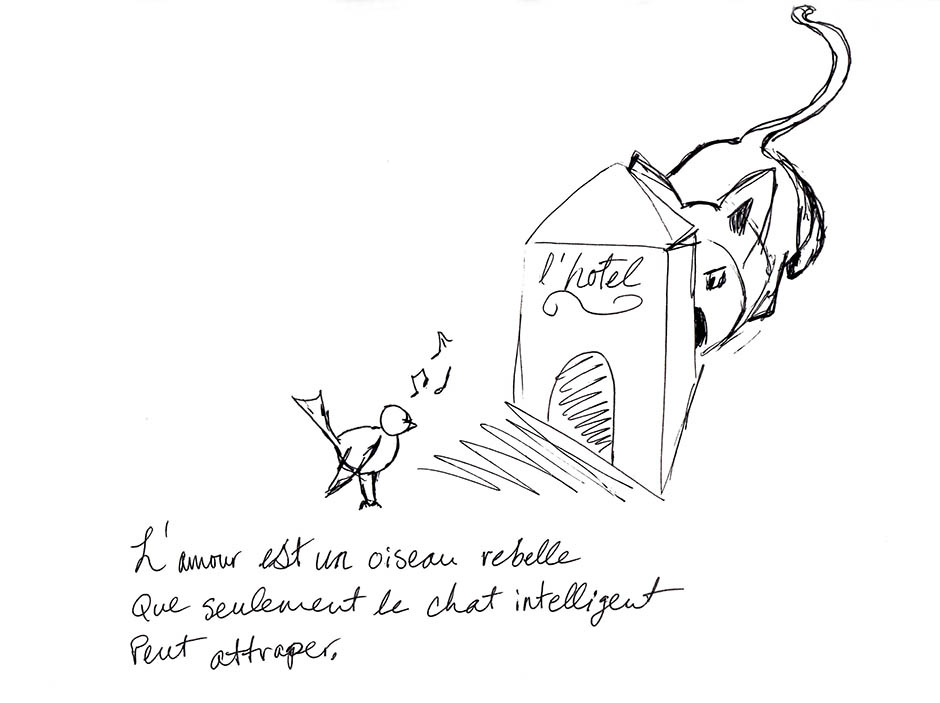 l'hotel
L'amour est un oiseau rebelle
Que seulement le chat intelligent
Peut attraper.